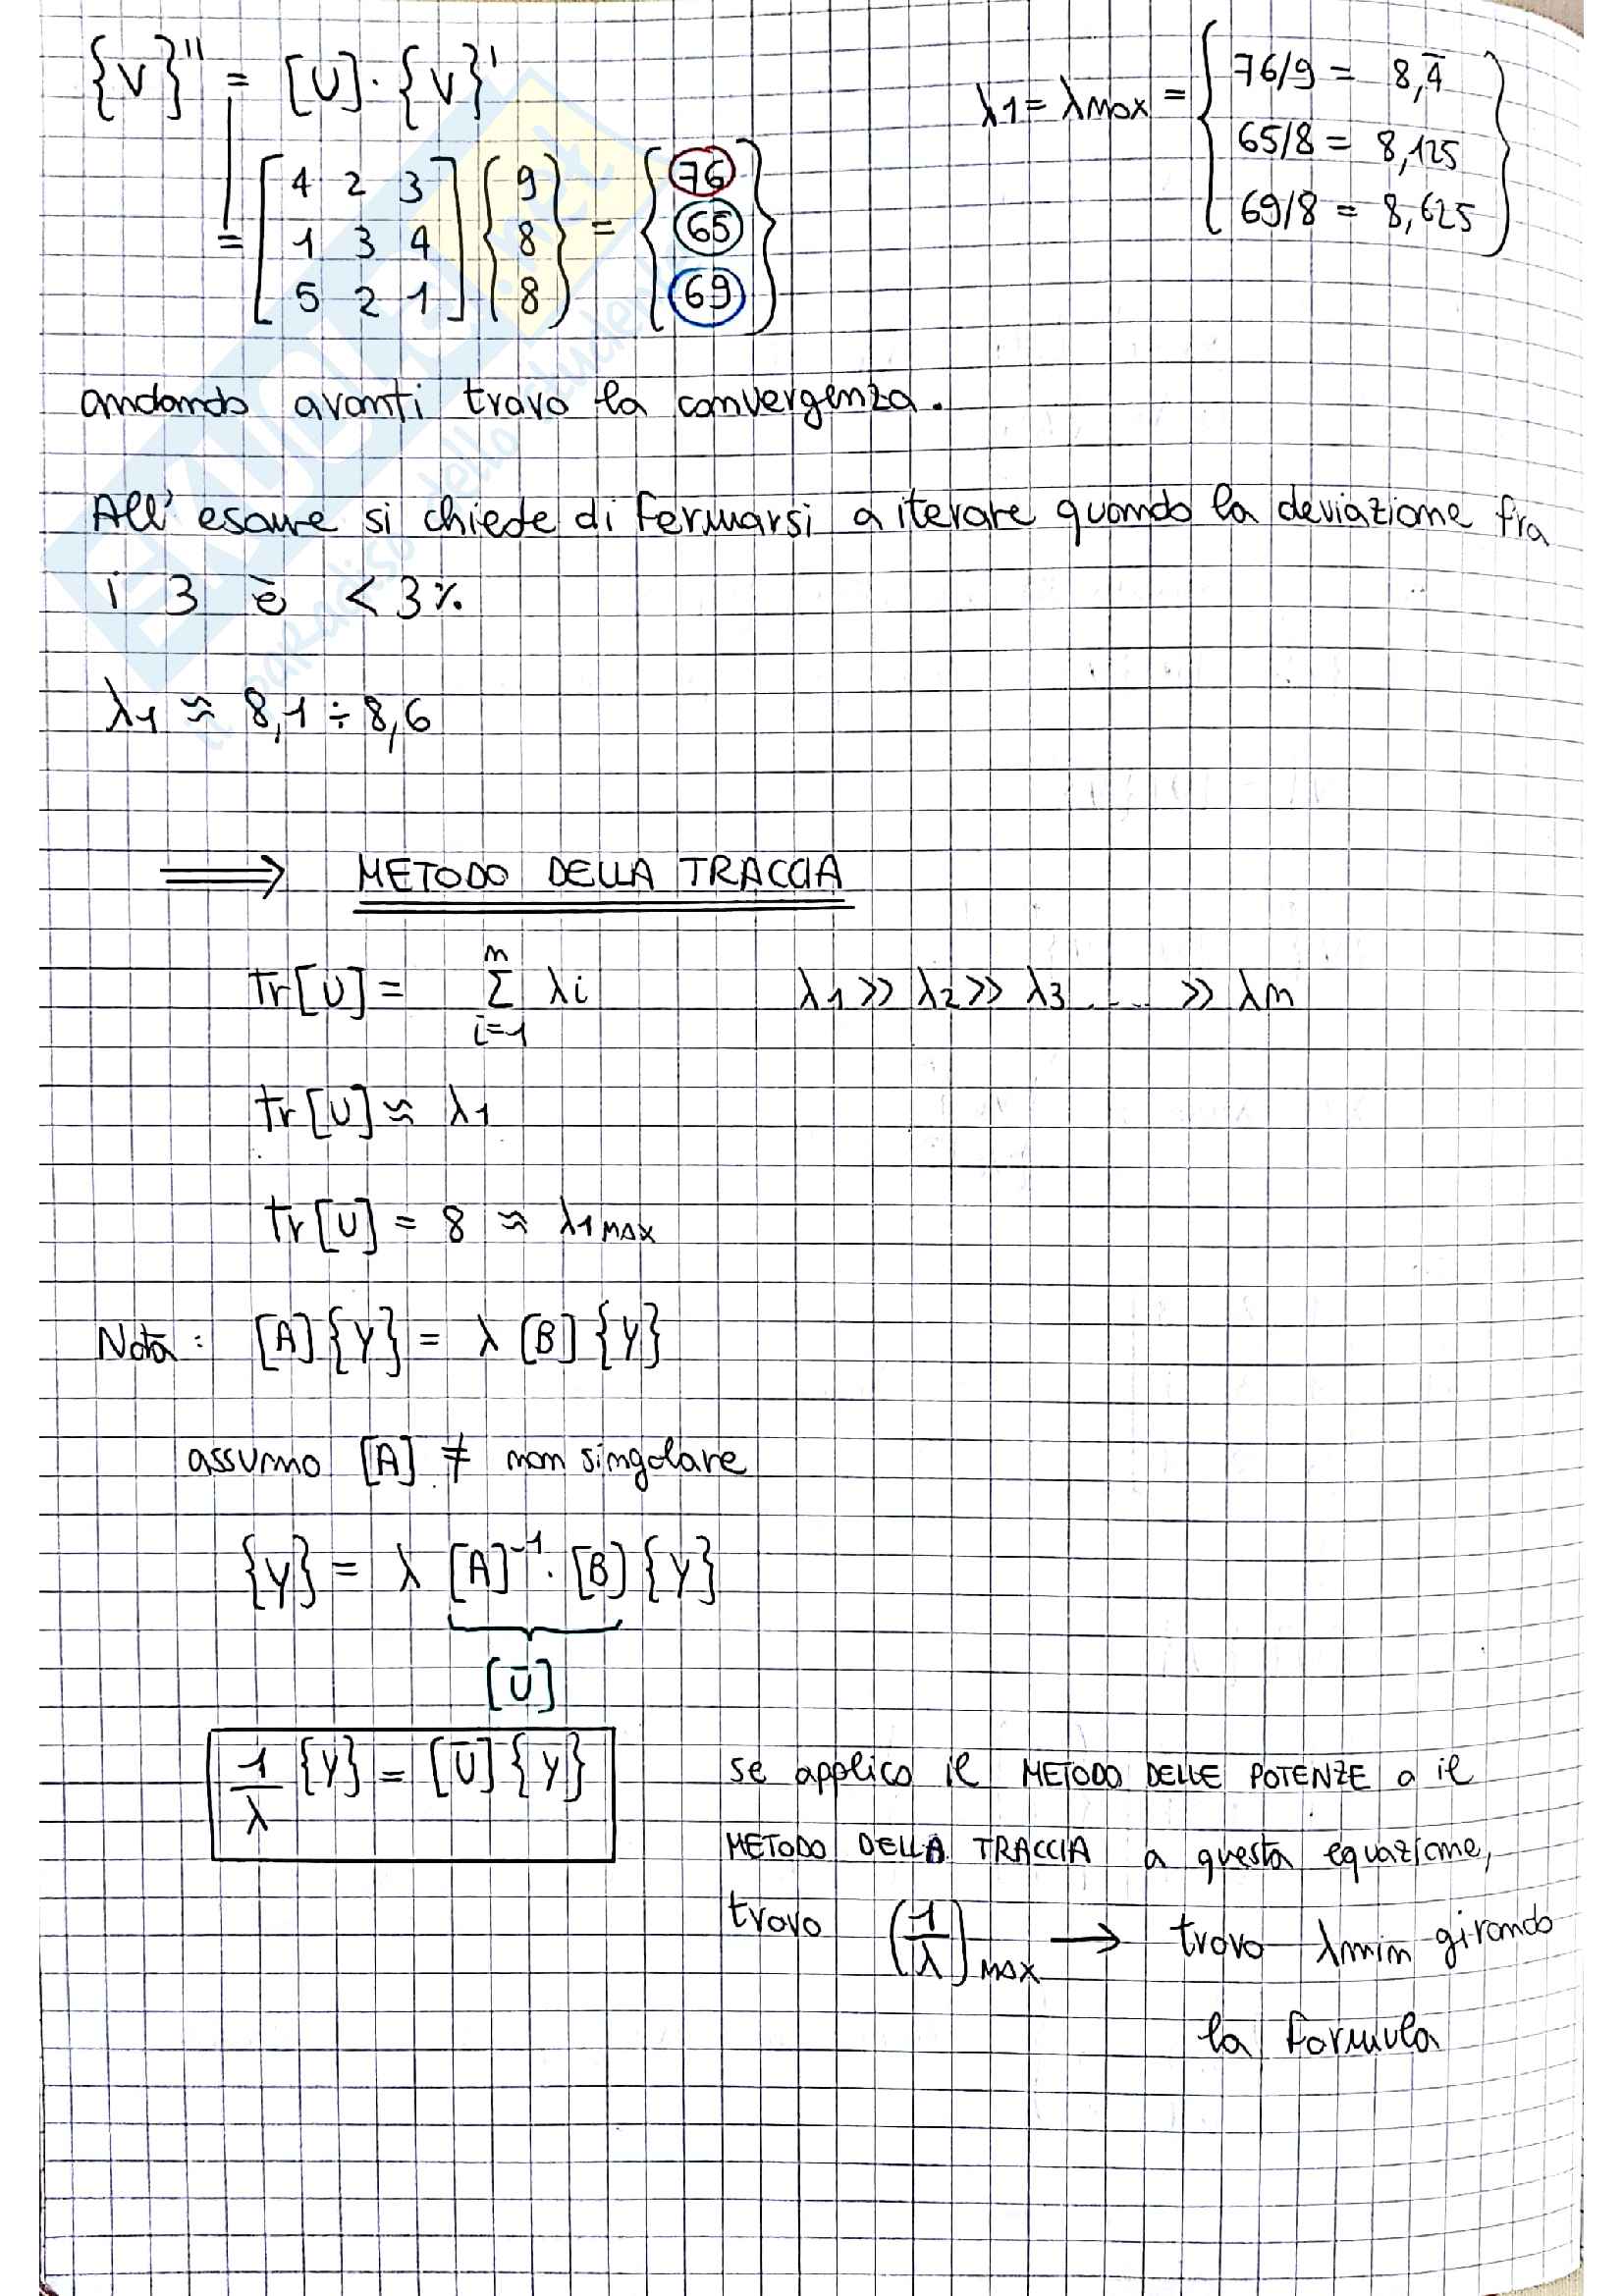 {V}'' = [U]·{V}'
λ1 = λMAX = { 76/9 = 8,4̄
65/8 = 8,125
69/8 = 8,625 }
= [ 4 2 3 ] { 9 } = { 76 }
[ 1 3 4 ] { 8 } { 65 }
[ 5 2 1 ] { 8 } { 69 }
andando avanti trovo la convergenza.
All' esame si chiede di fermarsi a iterare quando la deviazione fra
i 3 è < 3%.
λ1 ≈ 8,1 ÷ 8,6
⟹ METODO DELLA TRACCIA
Tr[U] = n Σ i=1 λi λ1 >> λ2 >> λ3 .... >> λn
Tr[U] ≈ λ1
Tr[U] = 8 ≈ λ1MAX
Nota: [A]{Y} = λ [B]{Y}
assumo [A] ≠ non singolare
{Y} = λ [A]⁻¹·[B]{Y}
[Ū]
1/λ {Y} = [Ū]{Y}
se applico il METODO DELLE POTENZE a il
METODO DELLA TRACCIA a questa equazione,
trovo (1/λ)MAX → trovo λmin girando
la formula